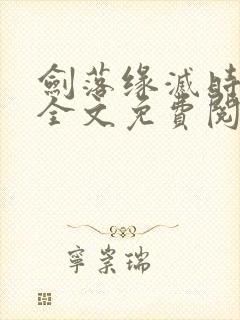 劍落缘滅時
全文免費閱
寧崇瑞